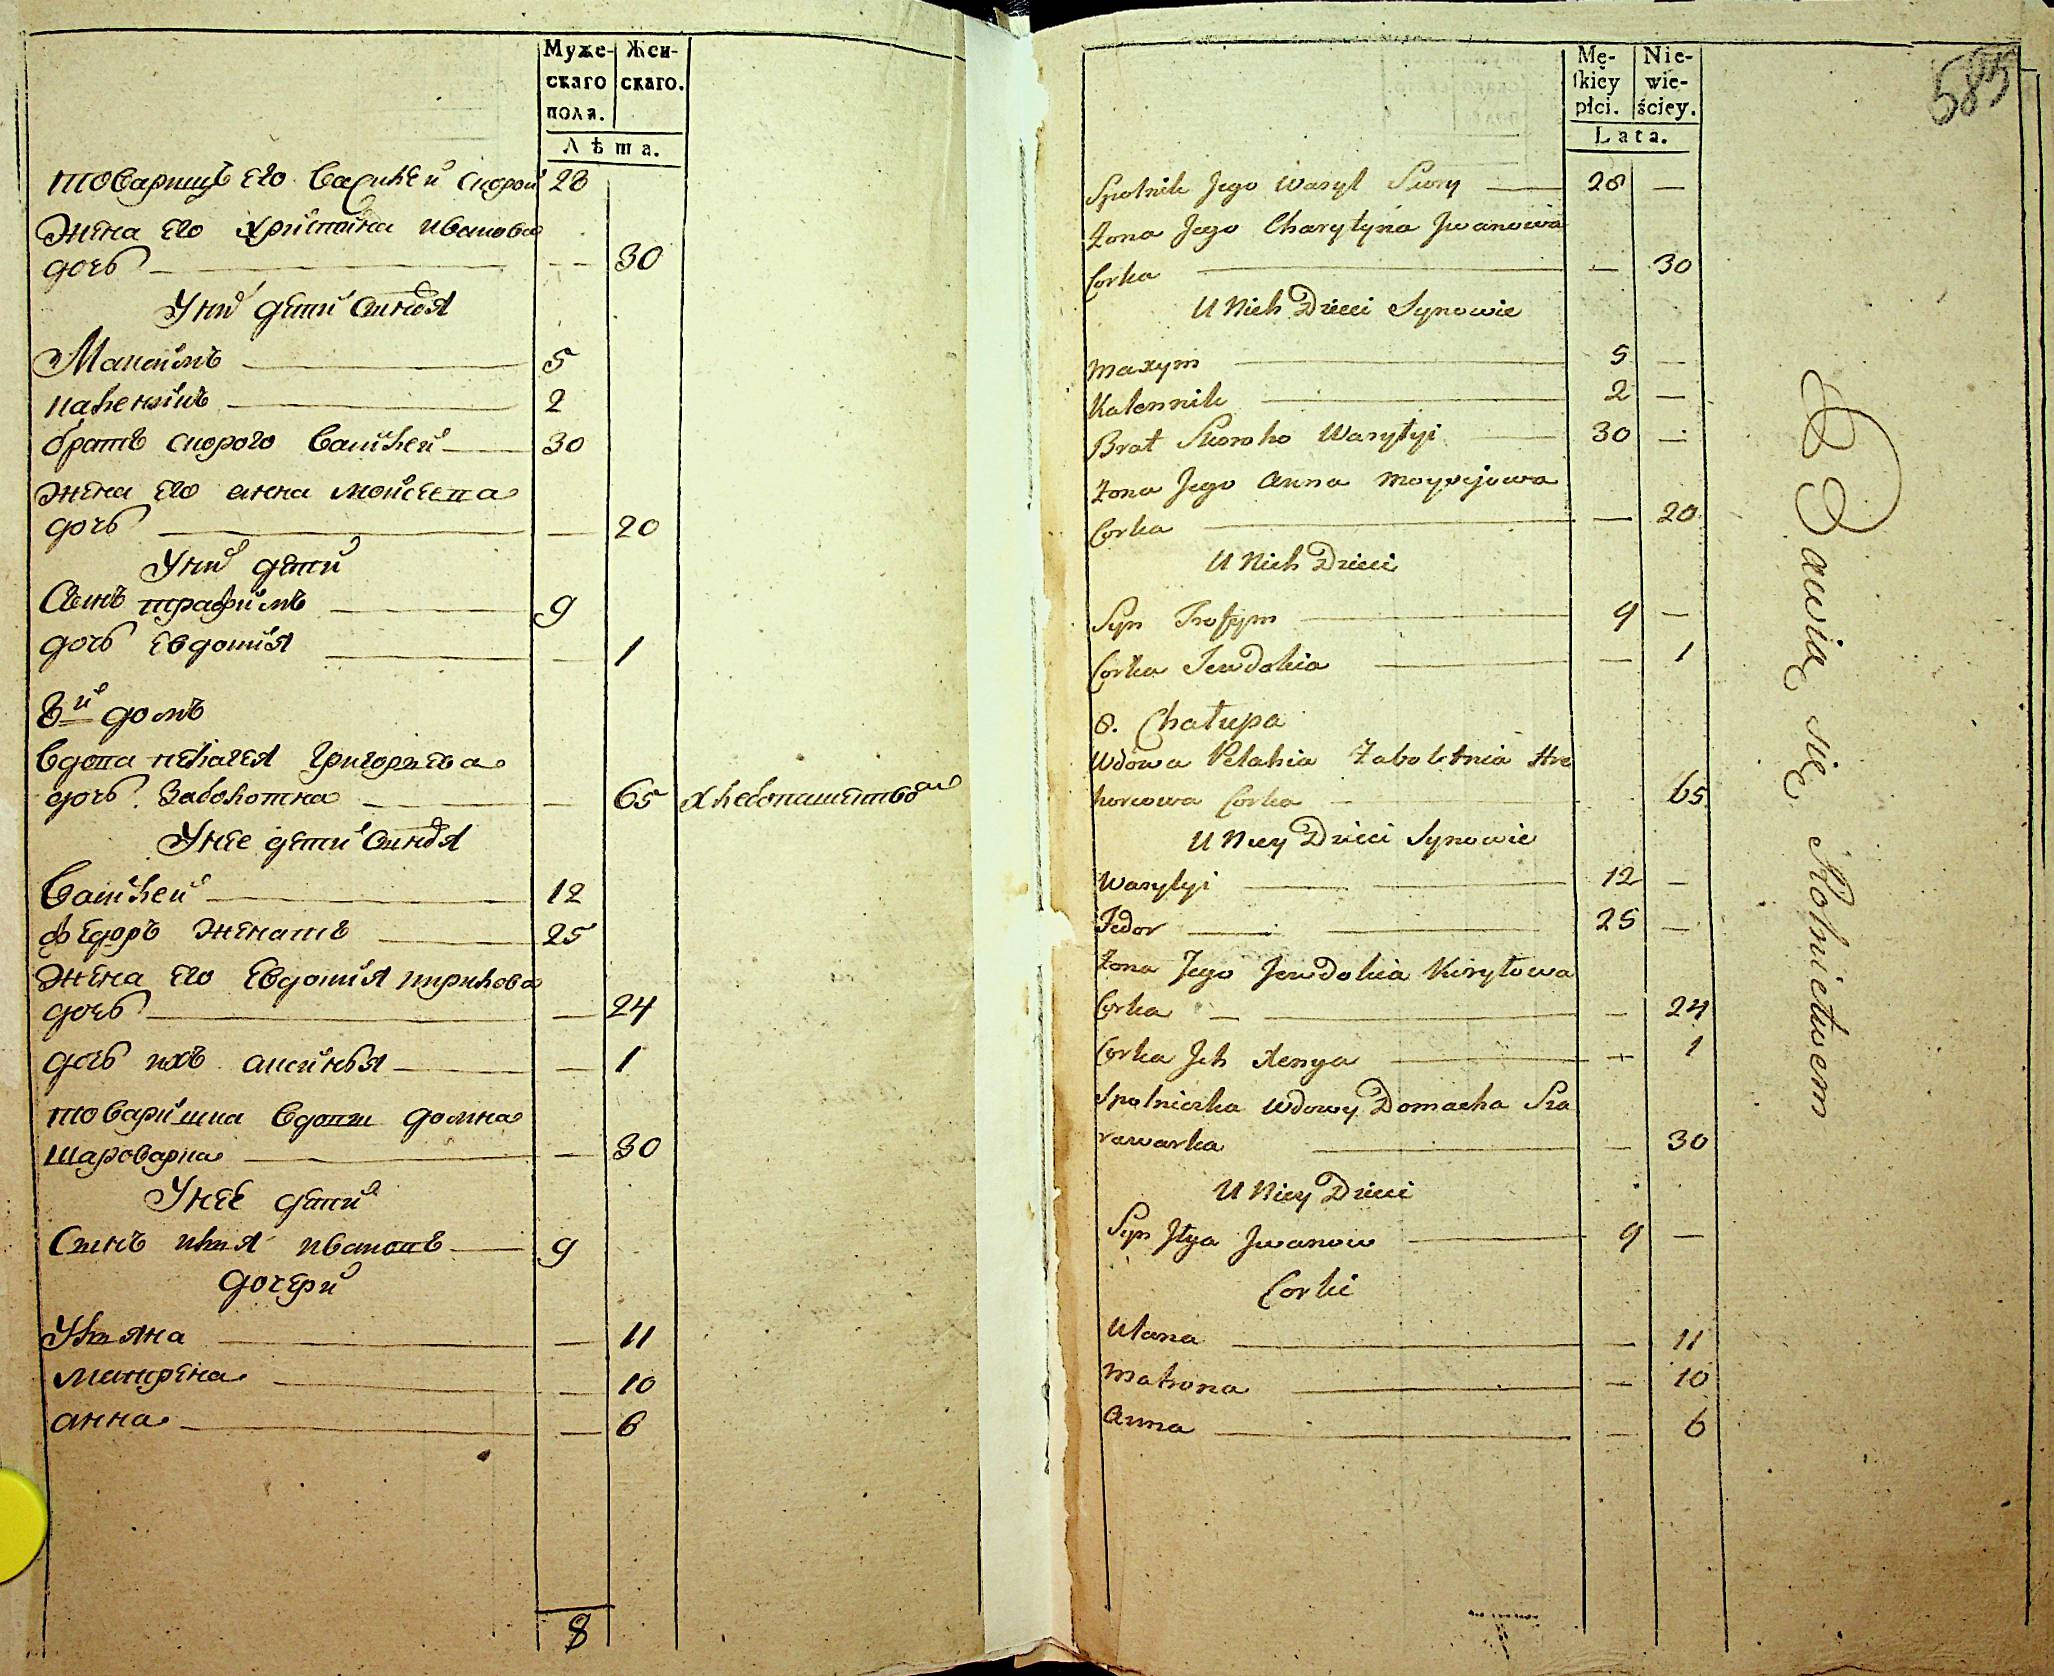 Муже-
скаго
пола.
Жен-
скаго.
Лѣта.
товарищъ его Василей скорой 28
жена его христина иванова
дочь 30
У них дети синовя
Максимъ 5
каленикъ 2
братъ скорого Василей 30
жена его анна моисеева
дочь 20
У них дети
Синъ трафимъ 9
дочь евдокия 1
8й домъ
вдова пелагея григориева
дочь Заболотна 65 хлебопашествомъ
У нее дети синовя
Василей 12
федоръ женатъ 25
жена его евдокия кирилова
дочь 24
дочь ихъ аксинья 1
товаришка вдови домна
шароварка 30
У нее дети
Синъ илия ивановъ 9
дочери
Улияна 11
матрена 10
анна 6
8
Mę-
skiey
płci.
Nie-
wie-
ściey.
Lata.
585
Spolnik Jego Wasyl Skory 28
Żona Jego Charytyna Jwanowa
Corka 30
U Nich Dzieci Synowie
Maxym 5
Kalennik 2
Brat Skoroho Wasylyi 30
Żona Jego Anna Moysejowa
Corka 20
U Nich Dzieci
Syn Trofym 9
Corka Jewdokia 1
8. Chałupa
Wdowa Pelahia Zabolotnia Hre
horowa Corka 65
U Niey Dzieci Synowie
Wasylyi 12
Fedor 25
Żona Jego Jewdokia Kiryłowa
Corka 24
Corka Jch Xenya 1
Spolniczka Wdowy Domacha Sza
rawarka 30
U Niey Dzieci
Syn Jlya Jwanow 9
Corki
Ulana 11
Matrona 10
Anna 6
Bawią się Rolnictwem